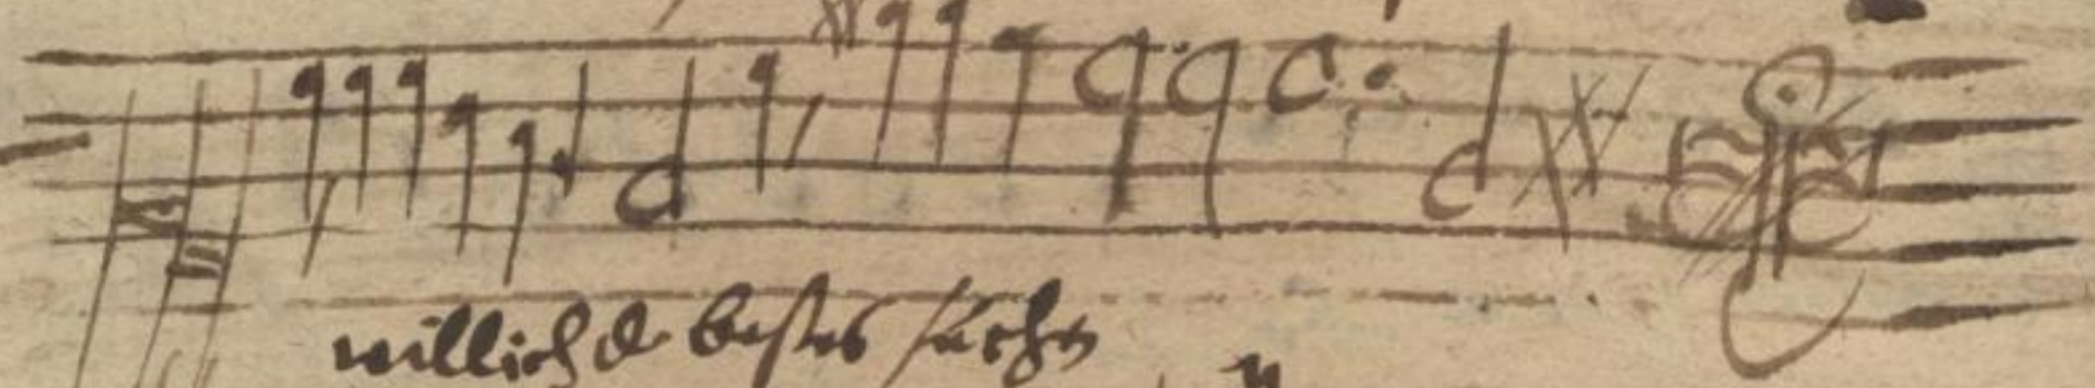 willich d bestes suchn